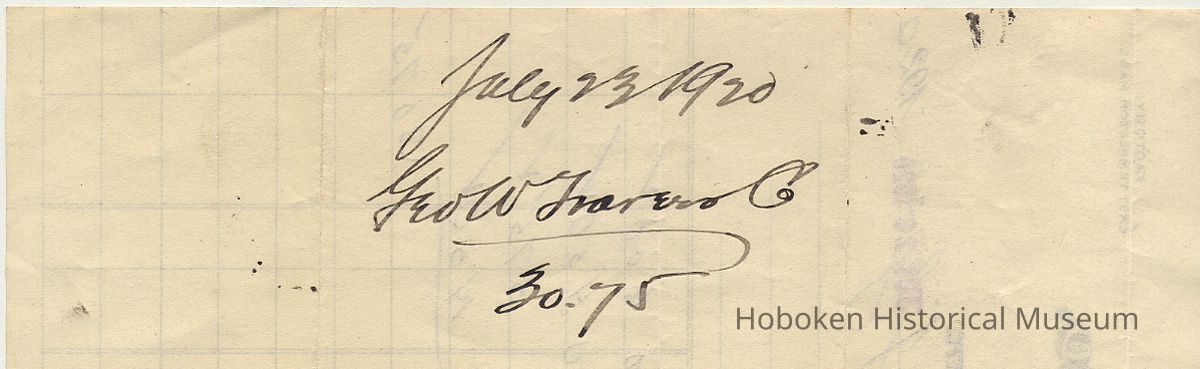 July 23 1920
Geo W Travers C
30.75
Hoboken Historical Museum